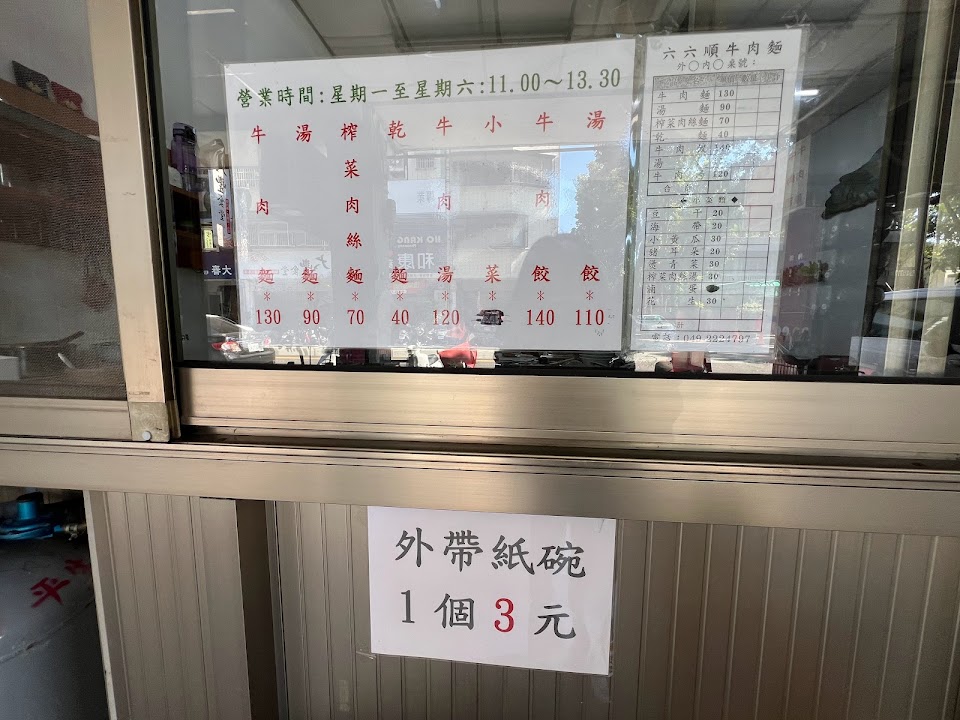 營業時間:星期一至星期六:11.00～13.30
牛肉麵*130
湯麵*90
榨菜肉絲麵*70
乾麵*40
牛肉湯*120
小菜*
牛肉餃*140
湯餃*110
六六順牛肉麵
外○內○桌號:
牛肉麵 130
湯麵 90
榨菜肉絲麵 70
乾麵 40
牛肉
湯
牛肉 120
豆干 20
海帶 20
小黃瓜 30
豬耳朵 20
燙青菜 30
榨菜肉絲湯 30
滷蛋
花生 30
合計
電話:049 2224797
外帶紙碗
1個3元
HO KANG
和康
大春